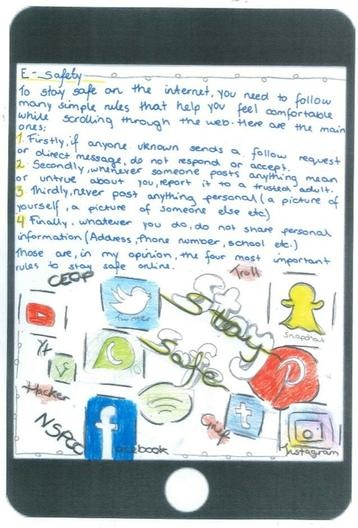 E - Safety
To stay safe on the internet, you need to follow
many simple rules that help you feel comfortable
while scrolling through the web. Here are the main
ones:
1. Firstly, if anyone uknown sends a follow request
or direct message, do not respond or accept.
2 Secondly, whenever someone posts anything mean
or untrue about you, report it to a trusted adult.
3 Thirdly, never post anything personal (a picture of
yourself, a picture of someone else etc)
4 Finally, whatever you do, do not share personal
information (Address, Phone number, school etc.)
Those are, in my opinion, the four most important
rules to stay safe online.
CEOP
Troll
Twitter
Stay
Snapchat
Yt
Safe
Hacker
Grief
t
NSPCC
f
Facebook
Instagram